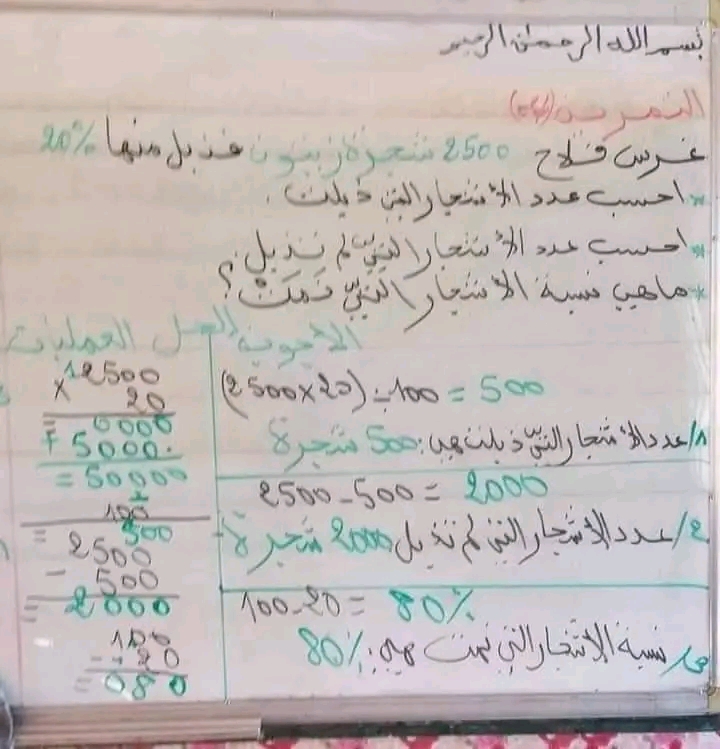 بسم الله الرحمان الرحيم
التمرين
غرس فلاح 2500 شجرة زيتون فذبل منها 20%
* احسب عدد الأشجار التي ذبلت.
* احسب عدد الأشجار التي لم تذبل.
* ماهي نسبة الأشجار التي نمت؟
الأجوبة الحل العمليات
(2500×20)÷100 = 500
1/ عدد الأشجار التي ذبلت هي: 500 شجرة
2500-500 = 2000
2/ عدد الأشجار التي لم تذبل 2000 شجرة
100-20 = 80%
3/ نسبة الأشجار التي نمت هي: 80%
12500
× 20
= 0000
+ 5000.
= 50000
÷
100
= 500
2500
- 500
= 2000
100
- 20
= 080